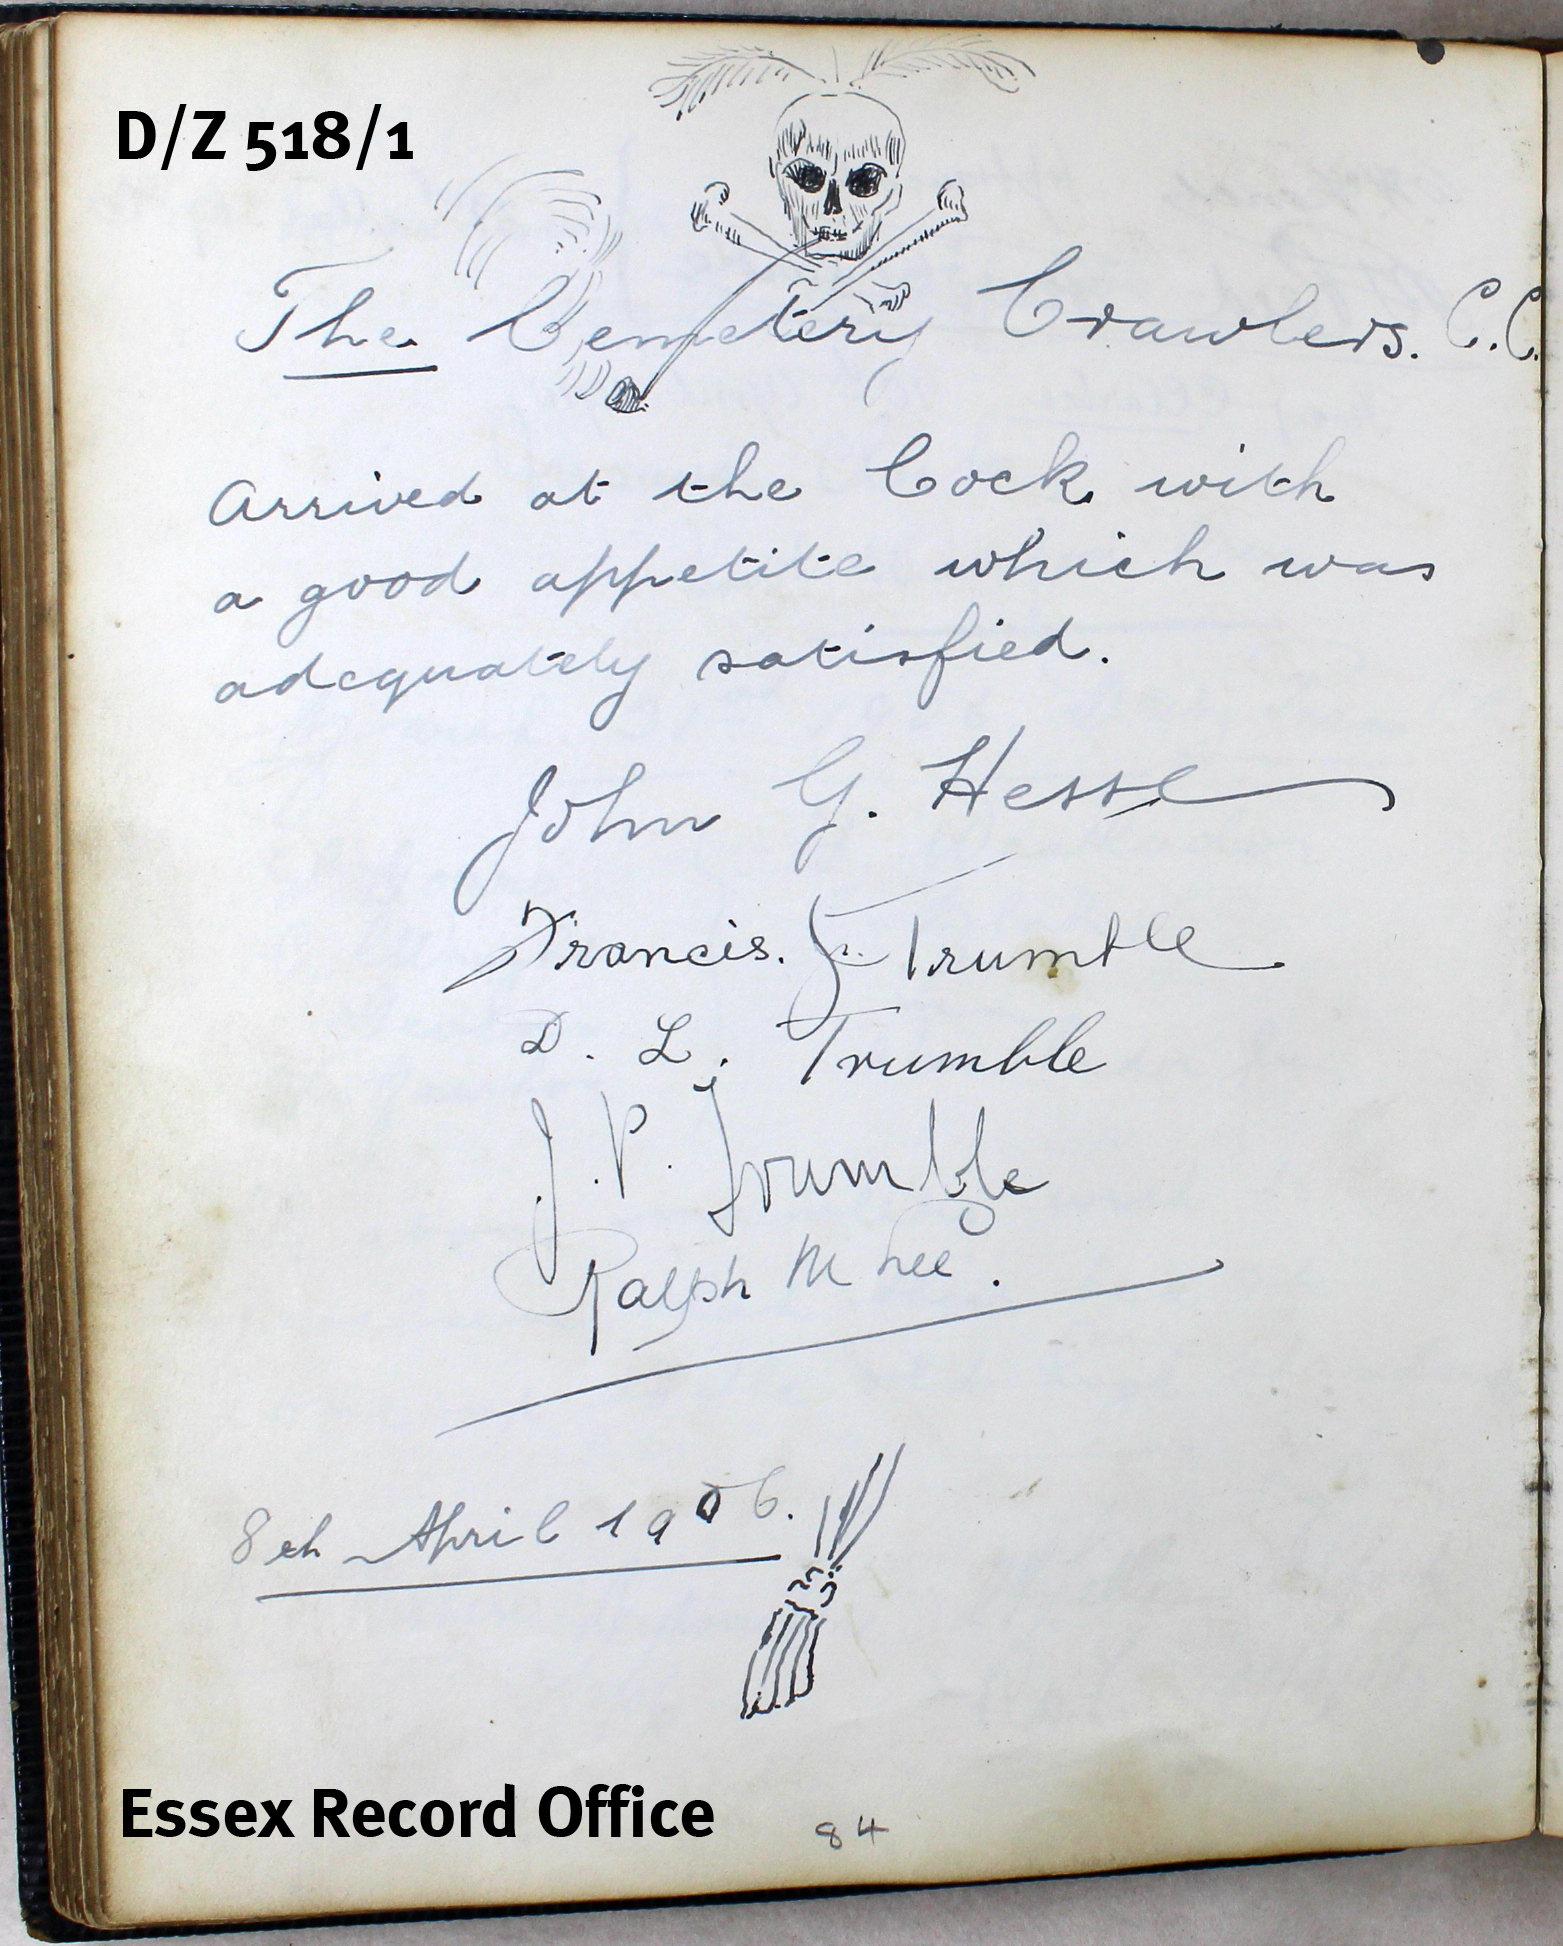 D/Z 518/1
The Cemetery Crawlers. C.C.
Arrived at the Cock with
a good appetite which was
adequately satisfied.
John G. Hesse
Francis. Trumble
D. L. Trumble
J. P. Trumble
Ralph M Lee.
8th April 1906.
Essex Record Office
84